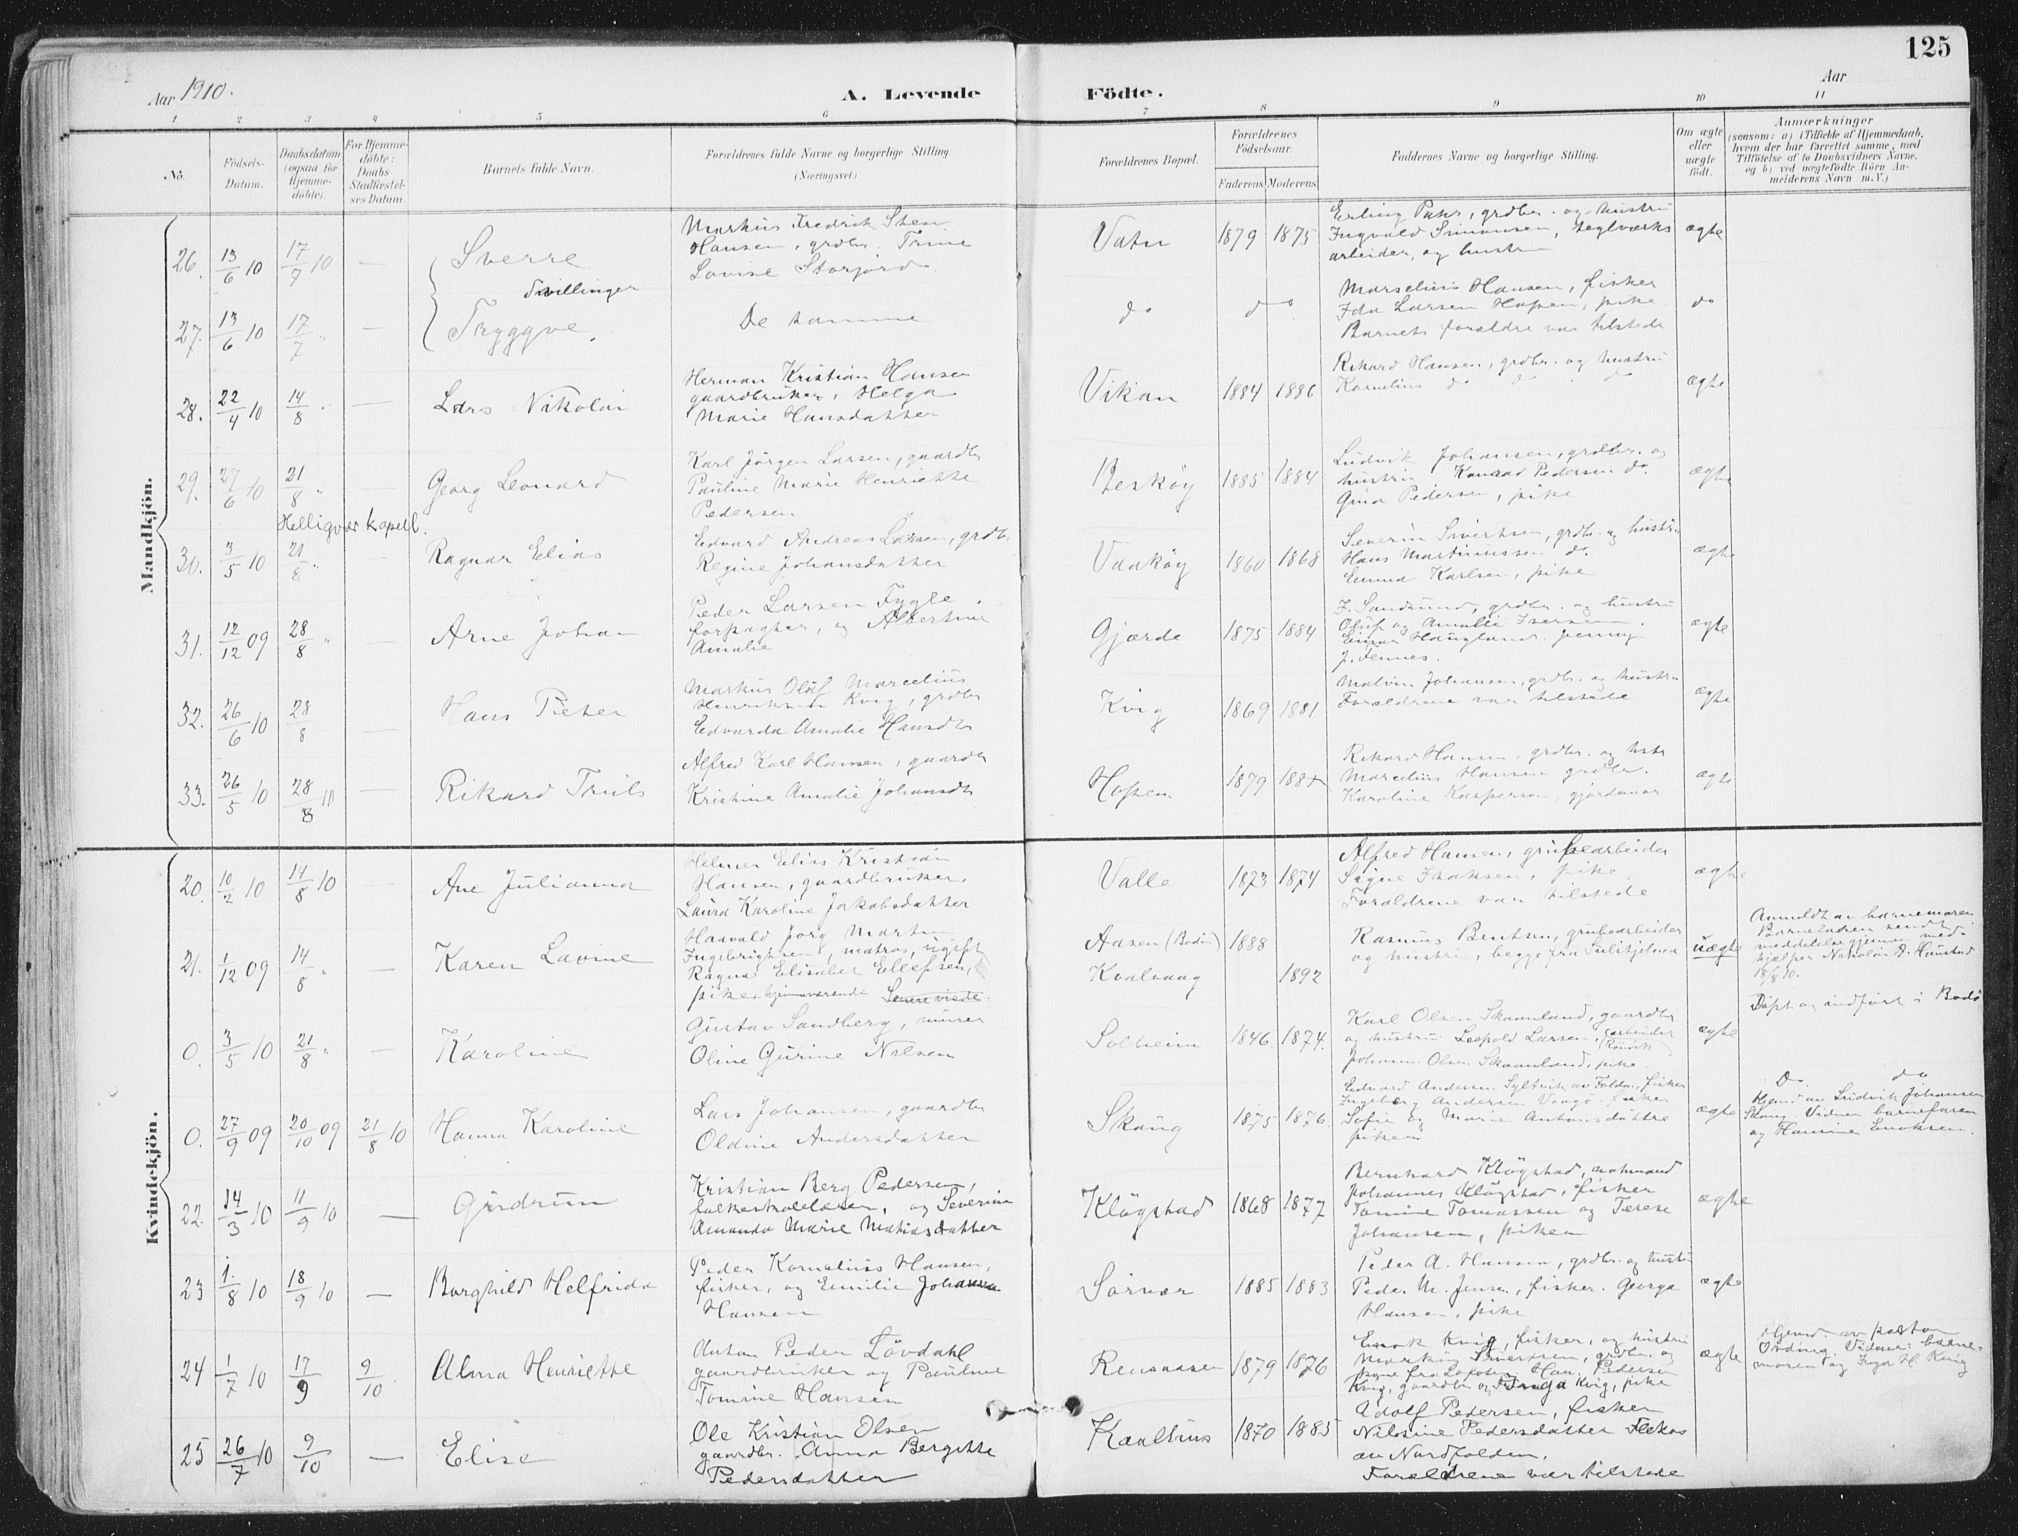 125
Aar 1910.
A. Levende Födte.
Aar
1 2 3 4 5 6 7 8 9 10 11
No.
Födsels-Datum.
Daabsdatum (ogsaa for Hjemmedöbte).
For Hjemmedöbte: Daabs Stadfæstelses Datum.
Barnets fulde Navn.
Forældrenes fulde Navne og borgerlige Stilling (Næringsvei.)
Forældrenes Bopæl.
Forældrenes Födselsaar.
Faderens Moderens
Faddernes Navne og borgerlige Stilling.
Om ægte eller uægte födt.
Anmærkninger
(saasom: a) i Tilfælde af Hjemmedaab,
hvem der har forrettet samme, med
Tilföielse af to Daabsvidners Navne,
og b) ved uægtefödte Börn An-
melderens Navn m.V.)
Mandkjön.
26. 13/6 10 17/7 10 — Sverre
Markus Fredrik Sten
Hansen, grdbr. Trine
Lovise Storjord
Vatn 1879 1875
Erling Pahr, grdbr. og hustru
Ingvald Simonsen, teglværks
arbeider, og hustru
ægte
Tvillinger
27. 13/6 10 17/7 " — Tryggve.
De samme
do do
Marselius Hansen, fisker
Ida Larsen Hopen, pike
Barnets forældre var tilstede
do
28. 22/4 10 14/8 " — Lars Nikolai
Herman Kristian Hansen
gaardbruker, Helga
Marie Hansdatter
Vikan 1884 1886
Rikard Hansen, grdbr. og hustru
Kornelius do do do
ægte
29. 27/6 10 21/8 " — Georg Leonard
Karl Jörgen Larsen, gaardbr
Pauline Marie Henriette
Pedersen
Besköy 1885 1884
Ludvik Johansen, grdbr. og
hustru Konrad Pedersen do.
Gina Pedersen, pike
ægte
Helligvær kapell.
30. 3/5 10 21/8 " — Ragnar Elias
Edvard Andreas Larsen, grdb.
Regine Johansdatter
Vaaköy 1860 1868
Severin Sivertsen, grdbr. og hustru
Hans Martinussen do.
Emma Karlsen, pike
ægte
31. 12/12 09 28/8 " — Arne Johan
Peder Larsen Fygle
forpagter, og Albertine
Amalie
Gjærde 1875 1884
J. Sandsund, grdbr. og hustru
Oluf og Amalie Iversen.
Einar Haugland.
ægte
32. 26/6 10 28/8 — Hans Peter
Markus Oluf Marcelius
Henriksen Kvig, grdbr
Edvarda Amalie Hansdtr
Kvig 1869 1881
Malvin Johansen, grdbr. og hustru
Forældrene var tilstede
ægte
33. 26/5 10 28/8 10 — Rikard Truls
Alfred Karl Hansen, gaardbr
Kristine Amalie Johansdtr
Hopen 1879
Rikard Hansen, grdbr. og hstr
Marcelius Hansen grdbr.
Karoline Kaspersen, gjordemor
ægte
Kvindekjön.
20. 10/2 10 14/8 10 — Ane Julianna
Helmer Elias Kristian
Hansen, gaardbruker.
Laura Karoline Jakobsdatter
Valle 1873 1874
Alfred Hansen, grubearbeider
Signe Isaksen, pike.
Forældrene var tilstede
ægte
21. 1/12 09 14/8 " — Karen Lovine
Haavald Jorg Martin
Ingebrigtsen, matros, ugift
Ragna Elisabet Ellefsen,
pike hjemmeværende
Aasen (Bodin) 1888
Kvalvaag 1892
Rasmus Bentsen, grubearbeider
og hustru, begge fra Sulitjelma
uægte
Anmeldt av barnemoren
Barnefaren sendt
meddelelse gjennem med-
hjælper Nikolai A. Hunstad
18/8 10.
0. 3/5 10 21/8 " — Karoline
Gustav Sandberg, murer
Oline Gurine Nilsen
Solheim 1846 1874.
Karl Olsen Skaanland, gaardbr
og hustru. Leopold Larsen, (arbeider Rönvik)
Johanna Olsen Skaanland, pike
ægte
Döpt og indfört i Bodö
0. 27/9 09 20/10 09 21/8 10 Hanna Karoline
Lars Johansen, gaardbr
Oldine Andersdatter
Skaug 1875 1876
Edvard Andersen Syltvik av Folden, fisker
Ingeberg Andersen Vaagö, fisker
Sofie og Marie Antonsdöttre
piker
ægte
Do. do
Hjemd. av Ludvik Johansen
Skaug. Vidner barnefaren
og Hansine Enoksen.
22. 14/3 10 11/9 10 — Gudrun
Kristian Berg Pedersen,
folkeskolelærer, og Severine
Amanda Marie Matiasdatter
Klögstad 1868 1877
Bernhard Klögstad, notmand
Johannes Klögstad, fisker
Tomine Tomassen og Terese
Johansen, piker
ægte
23 1/8 10 18/9 10 — Borghild Helfrida
Peder Kornelius Hansen,
fisker, og Emilie Johanna
Hansen
Sörvær 1885 1883
Peder A. Hansen, grdbr. og hustru
Peder M. Jensen, fisker. Georga
Hansen, pike
ægte
24 1/7 10 17/9 9/10 Alma Henriette
Anton Peder Lövdahl
gaardbruker og Pauline
Tomine Hansen
Rensaasen 1879 1876
Enok Kvig, fisker, og hustru
Markus Sivertsen, grdbr. og
Kvig, gaardbr og Inga Kvig, pike
ægte
Hjemd. av pastor
Ording. Vidner: barne-
moren og Inga H. Kvig
25 26/7 10 9/10 — Elise
Ole Kristian Olsen
gaardbr. Anna Bergitte
Pedersdatter
Kaalhus 1870 1885
Adolf Pedersen, fisker
Nilsine Pedersdatter
av Nordfolden.
Foreldrene var tilstede